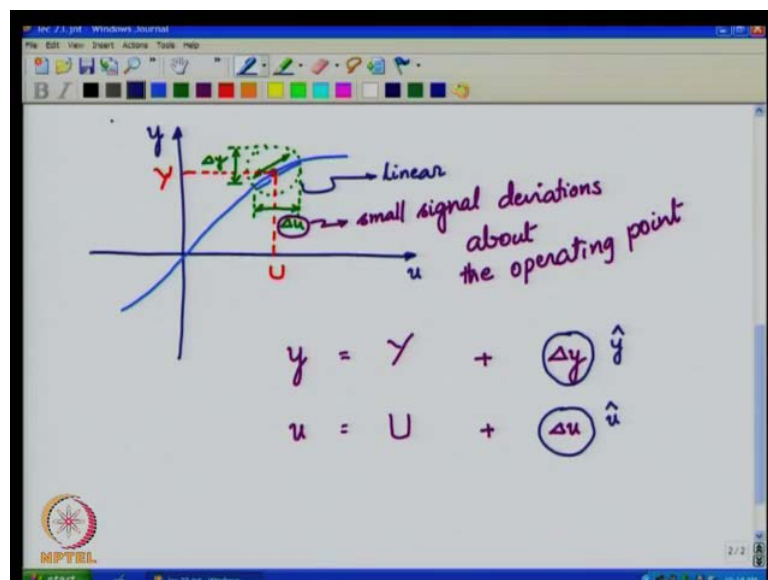 lec 23.jnt - Windows Journal
File Edit View Insert Actions Tools Help
B I
y
Δy
Y
Linear
Δu
small signal deviations
about
the operating point
U
u
y = Y + Δy ŷ
u = U + Δu û
NPTEL
2 / 2
start